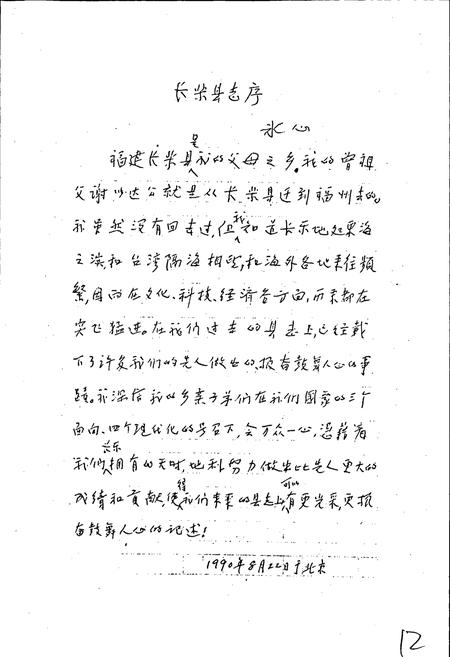 长乐县志序
冰心
福建长乐县是我的父母之乡。我的曾祖
父谢以达公就是从长乐县迁到福州去的。
我虽然没有回去过,但我知道长乐地处东海
之滨和台湾隔海相望,和海外各地来往频
繁,因而在文化、科技、经济各方面,历来都在
突飞猛进。在我们过去的县志上,已经载
下了许多我们的先人做出的振奋鼓舞人心的事
迹。我深信我的乡亲子弟们在我们国家的三个
面向、四个现代化的号召下,会万众一心,凭藉着
我们长乐拥有的天时,地利努力做出比先人更大的
成绩和贡献,使得我们未来的县志上,可以有更光采,更振
奋鼓舞人心的记述!
1990年8月22日于北京
12